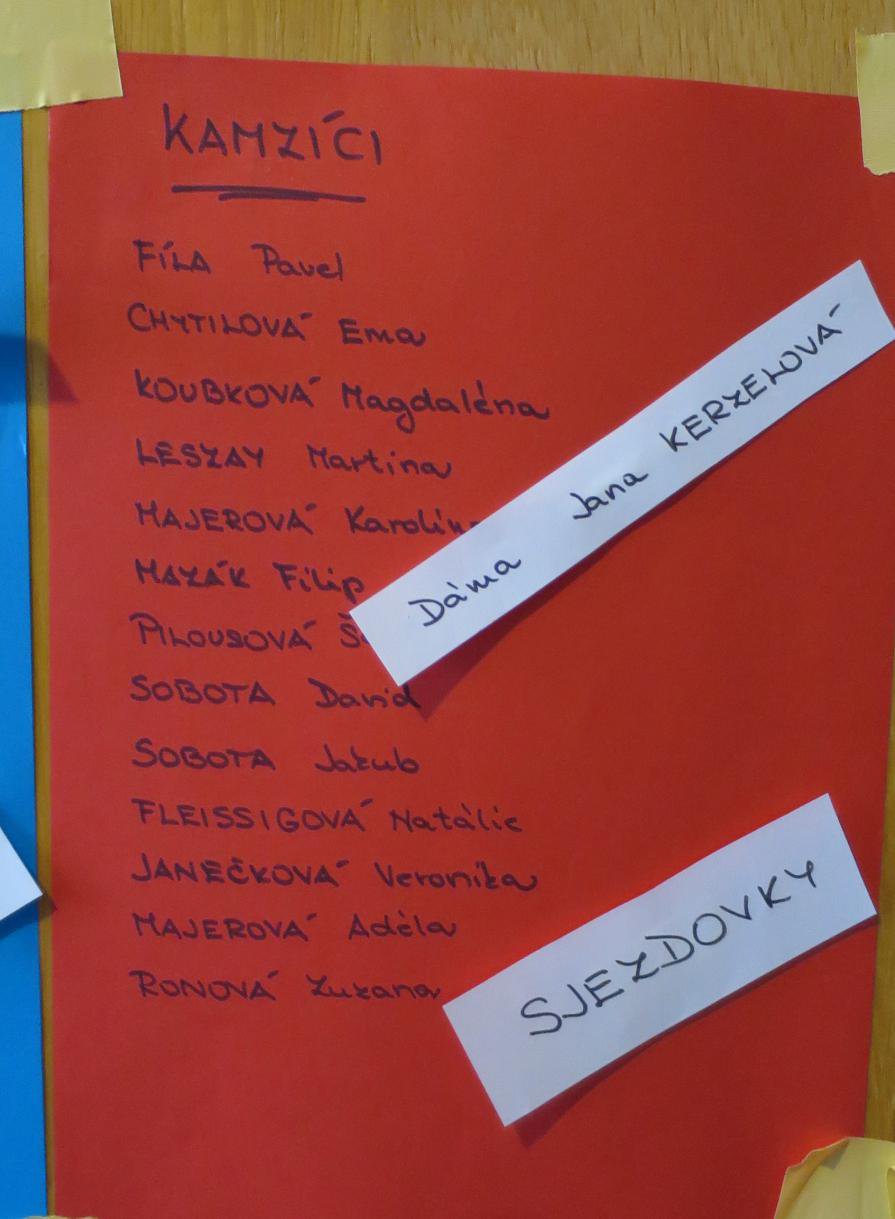 KAMZÍCI
FÍLA Pavel
CHYTILOVÁ Ema
KOUBKOVÁ Magdaléna
LESZAY Martina
MAJEROVÁ
MAZÁK Filip
PILOUSOVÁ
SOBOTA David
SOBOTA Jakub
FLEISSIGOVÁ Natálie
JANEČKOVÁ Veronika
MAJEROVÁ Adéla
RONOVÁ Zuzana
Dáma Jana KERZELOVÁ
SJEZDOVKY